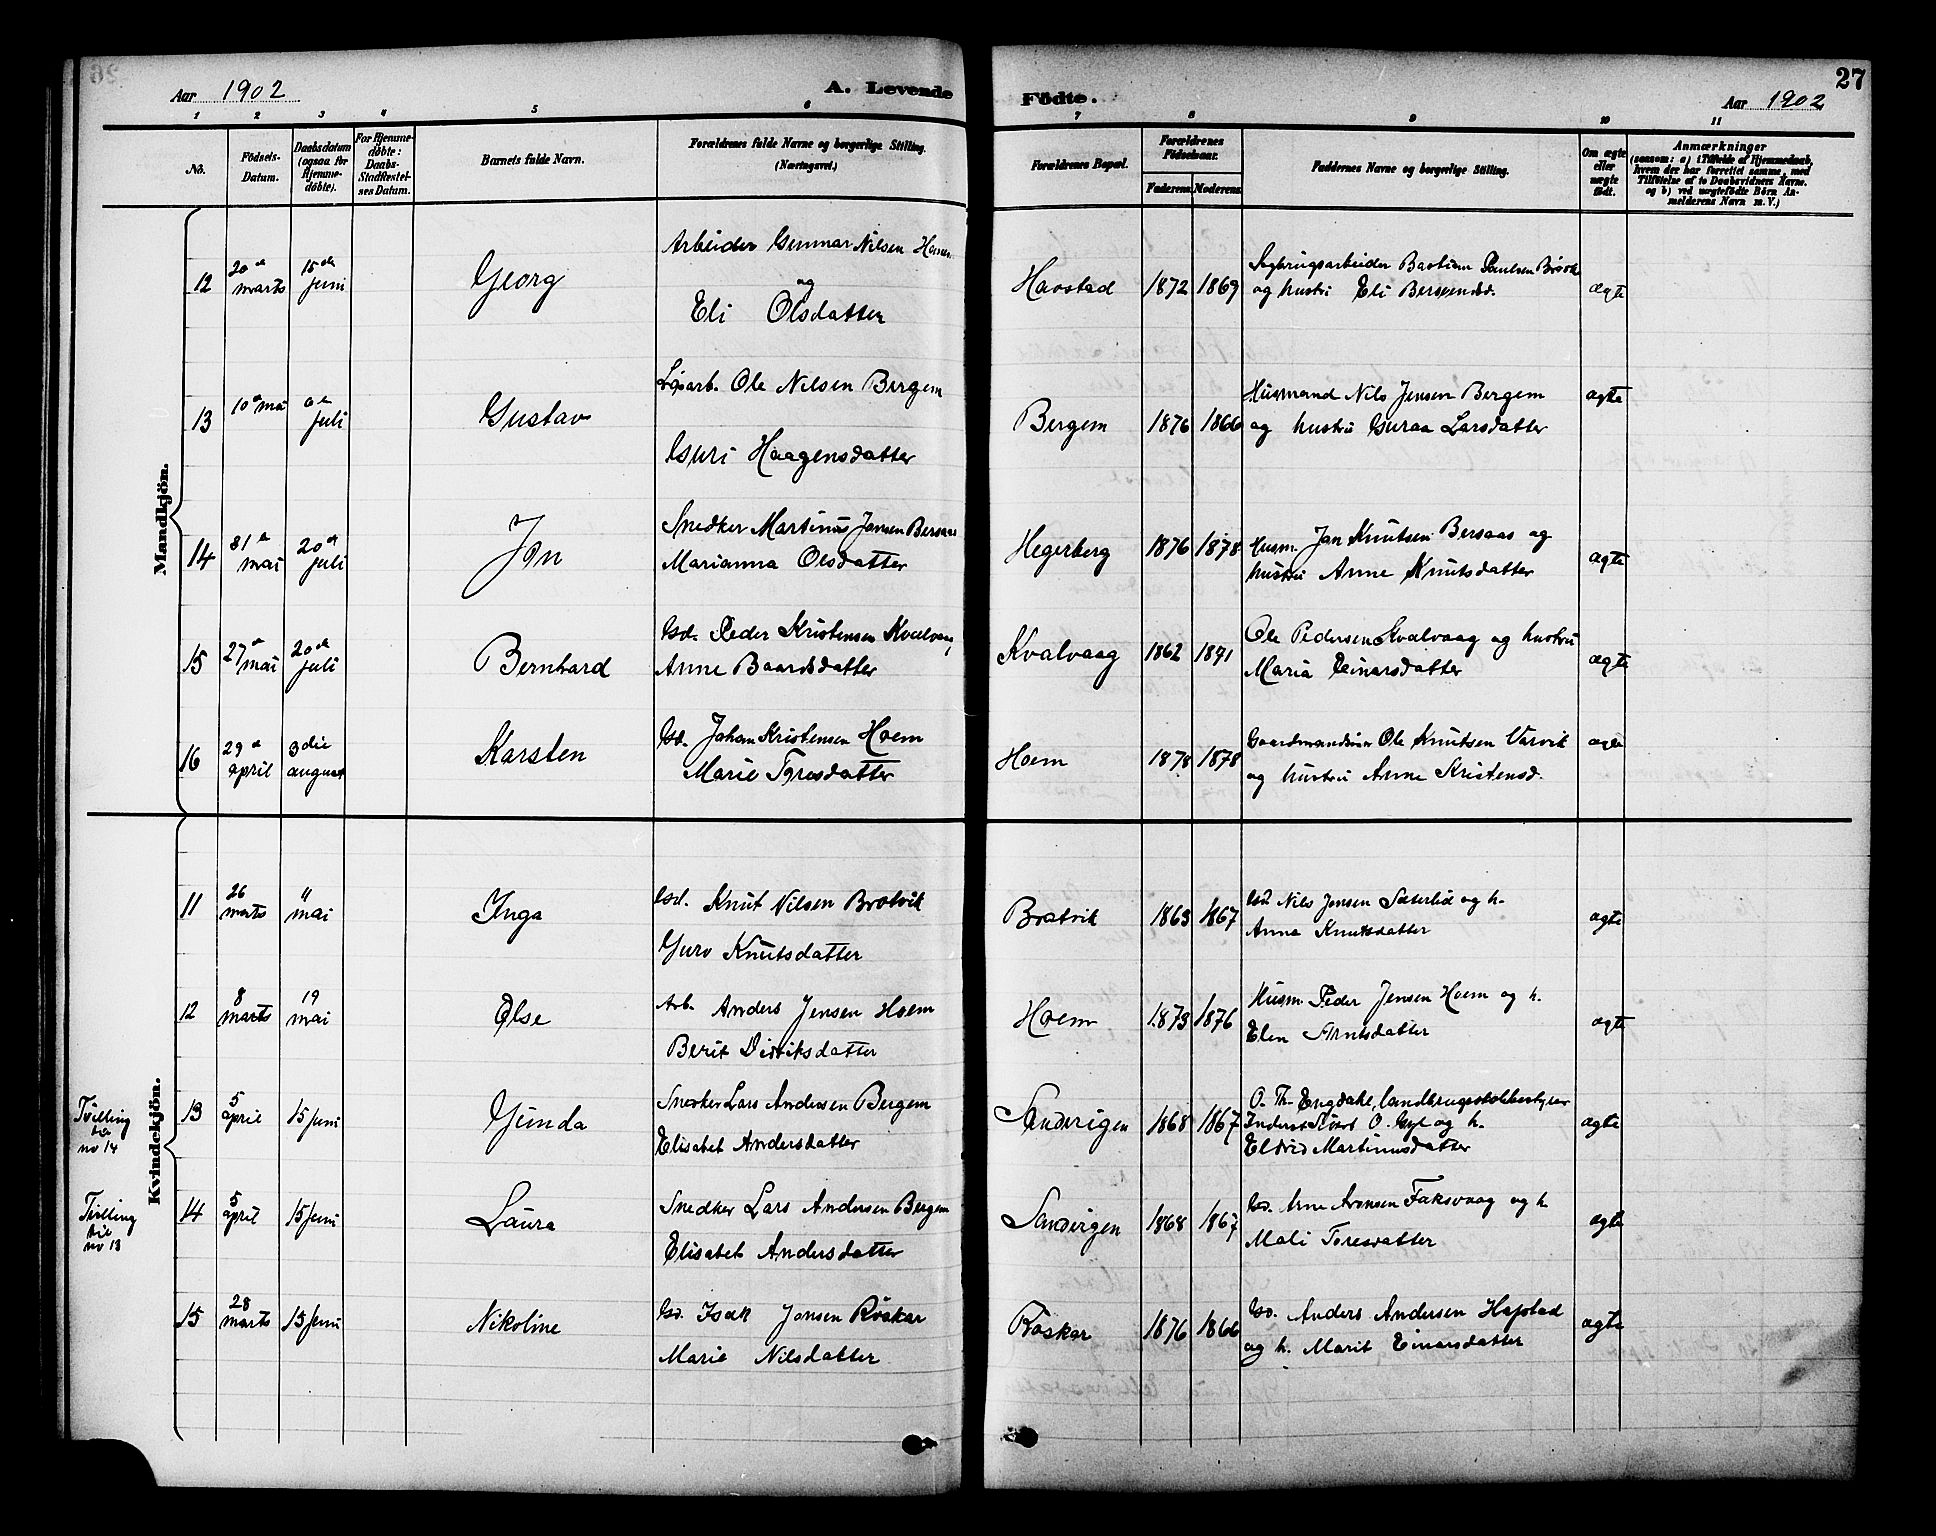 Aar 1902
A. Levende
Födte.
27
Aar 1902
1 2 3 4 5 6 7 8 9 10 11
No.
Födsels-
Datum.
Daabsdatum
(ogsaa for
Hjemme-
döbte).
For Hjemme-
döbte:
Daabs-
Stadfæstel-
ses Datum.
Barnets fulde Navn.
Forældrenes fulde Navne og borgerlige Stilling.
(Næringsvei.)
Forældrenes Bopæl.
Forældrenes
Födselsaar.
Faderens. Moderens.
Faddernes Navne og borgerlige Stilling.
Om ægte
eller
uægte
födt.
Anmærkninger
(saasom: a) i Tilfælde af Hjemmedaab,
hvem der har forrettet samme, med
Tilföielse af to Daabsvidners Navne.
og b) ved uægtefödte Börn An-
melderens Navn m. V.)
Mandkjön.
12 20de marts 15de juni Georg
Arbeider Gunnar Nilsen Hoem
og
Eli Olsdatter
Havstad 1872 1869
Sagbrugsarbeider Bastian Paulsen
og hustru Eli Bersvendsd.
ægte
13 10de mai juli Gustav
Lösarb. Ole Nilsen Bergem
Guri Haagensdatter
Bergem 1876 1866
Husmand Nils Jensen Bergem
og hustru Guraa Larsdatter
ægte
14 31te mai 20de juli Jon
Snedker Martinus Jansen Bersaas
Marianna Olsdatter
Hegerberg 1876 1878
Husm. Jan Knutsen Bersaas og
hustru Anne Knutsdatter
ægte
15 27de mai 20de juli Bernhard
Gd. Peder Kristensen Kvalvaag,
Anne Baardsdatter
Kvalvaag 1862 1871
Ole Pedersen Kvalvaag og hustru
Maria Einarsdatter
ægte
16 29de april 3die august Karsten
Gd. Johan Kristensen Hoem
Marie Toresdatter
Hoem 1878 1878
Gaardmandssön Ole Knutsen Varvik
og hustru Anne Kristensd.
ægte
Kvindekjön.
11 26 marts " mai Inga
Gd. Knut Nilsen Bratvik
Guro Knutsdatter
Bratvik 1863 1867
Gd. Nils Jensen Sæterlid og h.
Anna Knutsdatter
ægte
12 8 marts 19 mai Else
Arb. Anders Jensen Hoem
Berit Didriksdatter
Hoem 1873 1876
Husm. Peder Jensen Hoem og h.
Elen Arntsdatter
ægte
Tvilling
til
no 14
13 5 april 15 juni Gunda
Snedker Lars Andersen Bergem
Elisabet Andersdatter
Sandvigen 1868 1867
O. Th. Engdahl, landbrugsskolebestyrer
O. Gyl og h.
Eldrid Martinusdatter
ægte
Tvilling
til
no 13
14 5 april 15 juni Laura
Snedker Lars Andersen Bergem
Elisabet Andersdatter
Sandvigen 1868 1867
Gd. Arne Aronsen Faksvaag og h.
Mali Toresdatter
ægte
15 28 marts 15 juni Nikoline
Gd. Isak Jonsen Röskar
Marie Nilsdatter
Röskar 1876 1866
Gd. Anders Andersen Hafstad
og h. Marit Einarsdatter
ægte